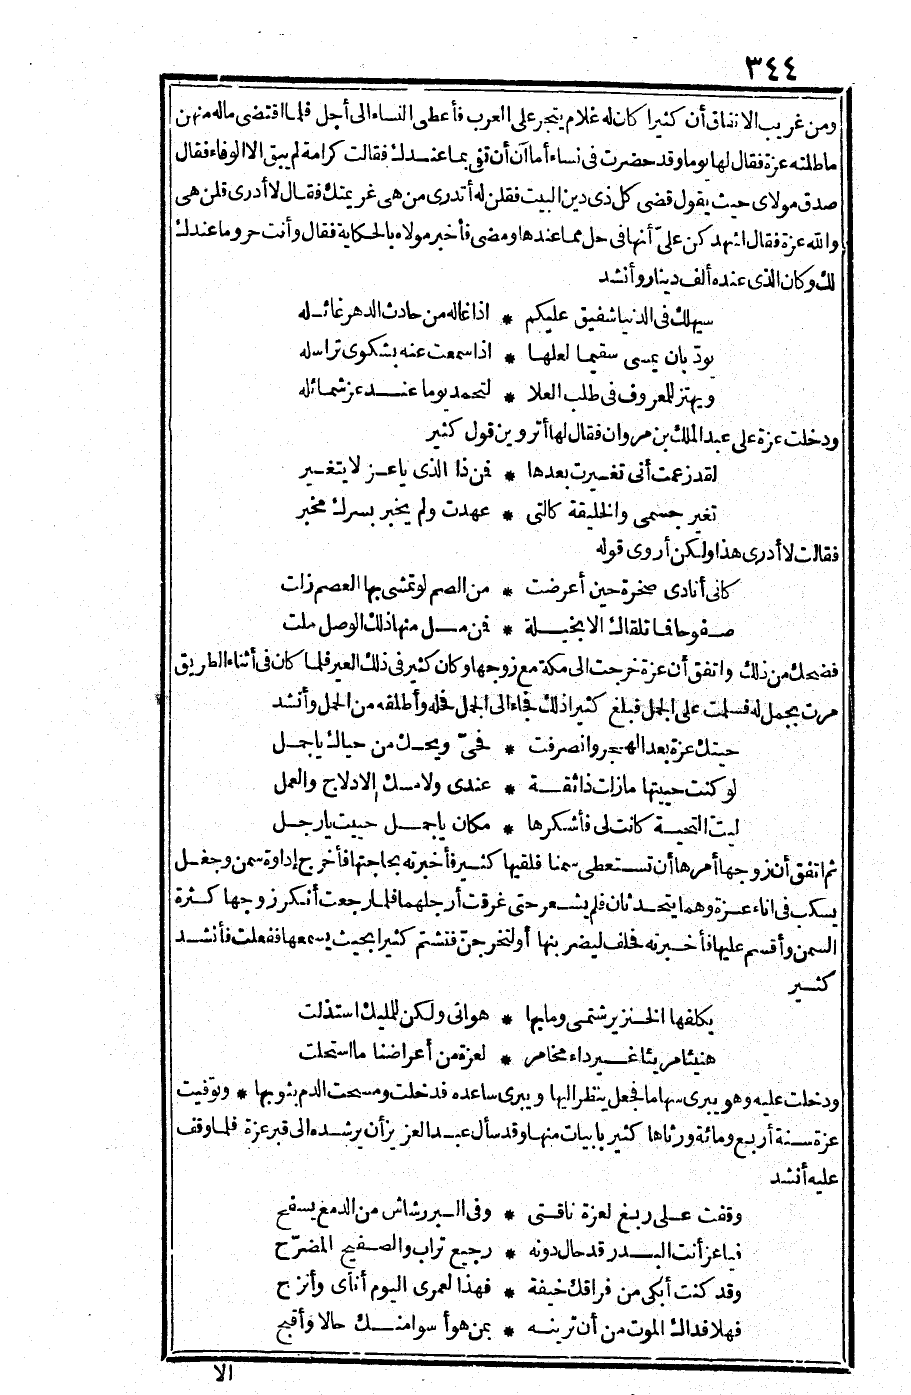 ٣٤٤
ومن غريب الاتفاق أن كثيرا كان له غلام يتجر على العرب فأعطى النساء الى أجل فلما اقتضى ماله منهن
ماطلته عزة فقال لها يوما وقد حضرت فى نساء أما آن أن تفى بما عندك فقالت كرامة لم يبق الا الوفاء فقال
صدق مولاى حيث يقول قضى كل ذى دين البيت فقلن له أتدرى من هى غريمتك فقال لا أدرى قلن هى
والله عزة فقال اشهدكن علىّ أنها فى حل مما عندها ومضى فأخبر مولاه بالحكاية فقال وأنت حر وما عندك
لك وكان الذى عنده ألف دينار وأنشد
سيهلك فى الدنيا شفيق عليكم * اذا غاله من حادث الدهر غائله
يودّ بان يمسى سقيما لعلها * اذا سمعت عنه بشكوى تراسله
ويهتز للمعروف فى طلب العلا * لتحمد يوما عند عز شمائله
ودخلت عزة على عبد الملك بن مروان فقال لها أتروين قول كثير
لقد زعمت أنى تغيرت بعدها * فمن ذا الذى يا عز لا يتغير
تغير جسمى والخليقة كالتى * عهدت ولم يخبر بسرك مخبر
فقالت لا أدرى هذا ولكن أروى قوله
كانى أنادى صخرة حين أعرضت * من الصم لو تمشى بها العصم زلت
صفوحا فما تلقاك الا بخيلة * فمن مل منها ذلك الوصل ملت
فضحك من ذلك واتفق أن عزة خرجت الى مكة مع زوجها وكان كثير فى ذلك العير فلما كان فى أثناء الطريق
مرت بجمل له فسلمت على الجمل فبلغ كثيرا ذلك فجاء الى الجمل فحله وأطلقه من الحمل وأنشد
حيتك عزة بعد الهجر وانصرفت * فحىّ ويحك من حياك يا جمل
لو كنت حييتها مازلت ذا ثقة * عندى ولا مسك الادلاج والعمل
ليت التحية كانت لى فأشكرها * مكان يا جمل حييت يا رجل
ثم اتفق أن زوجها أمرها أن تستعطى سمنا فلقيها كثير فأخبرته بحاجتها فأخرج إداوة سمن وجعل
يسكب فى اناء عزة وهما يتحدثان فلم يشعر حتى غرقت أرجلهما فلما رجعت أنكر زوجها كثرة
السمن وأقسم عليها فأخبرته فحلف ليضربنها أو لتخرجنّ فتشتم كثيرا بحيث يسمعها ففعلت فأنشد
كثير
يكلفها الخنزير شتمى وما بها * هوانى ولكن للمليك استذلت
هنيئا مريئا غير داء مخامر * لعزة من أعراضنا ما استحلت
ودخلت عليه وهو يبرى سهاما فجعل ينظر اليها ويبرى ساعده فدخلت ومسحت الدم بثوبها * وتوفيت
عزة سنة أربع ومائة ورثاها كثير بابيات منها وقد سأل عبد العزيز أن يرشده الى قبر عزة فلما وقف
عليه أنشد
وقفت على ربع لعزة ناقتى * وفى البر رشاش من الدمع يسفح
فيا عز أنت البدر قد حال دونه * رجيع تراب والصفيح المضرّح
وقد كنت أبكى من فراقك خيفة * فهذا لعمرى اليوم أنآى وأنزح
فهلا فداك الموت من أن تربنه * بمن هو أسوا منك حالا وأقبح
الا